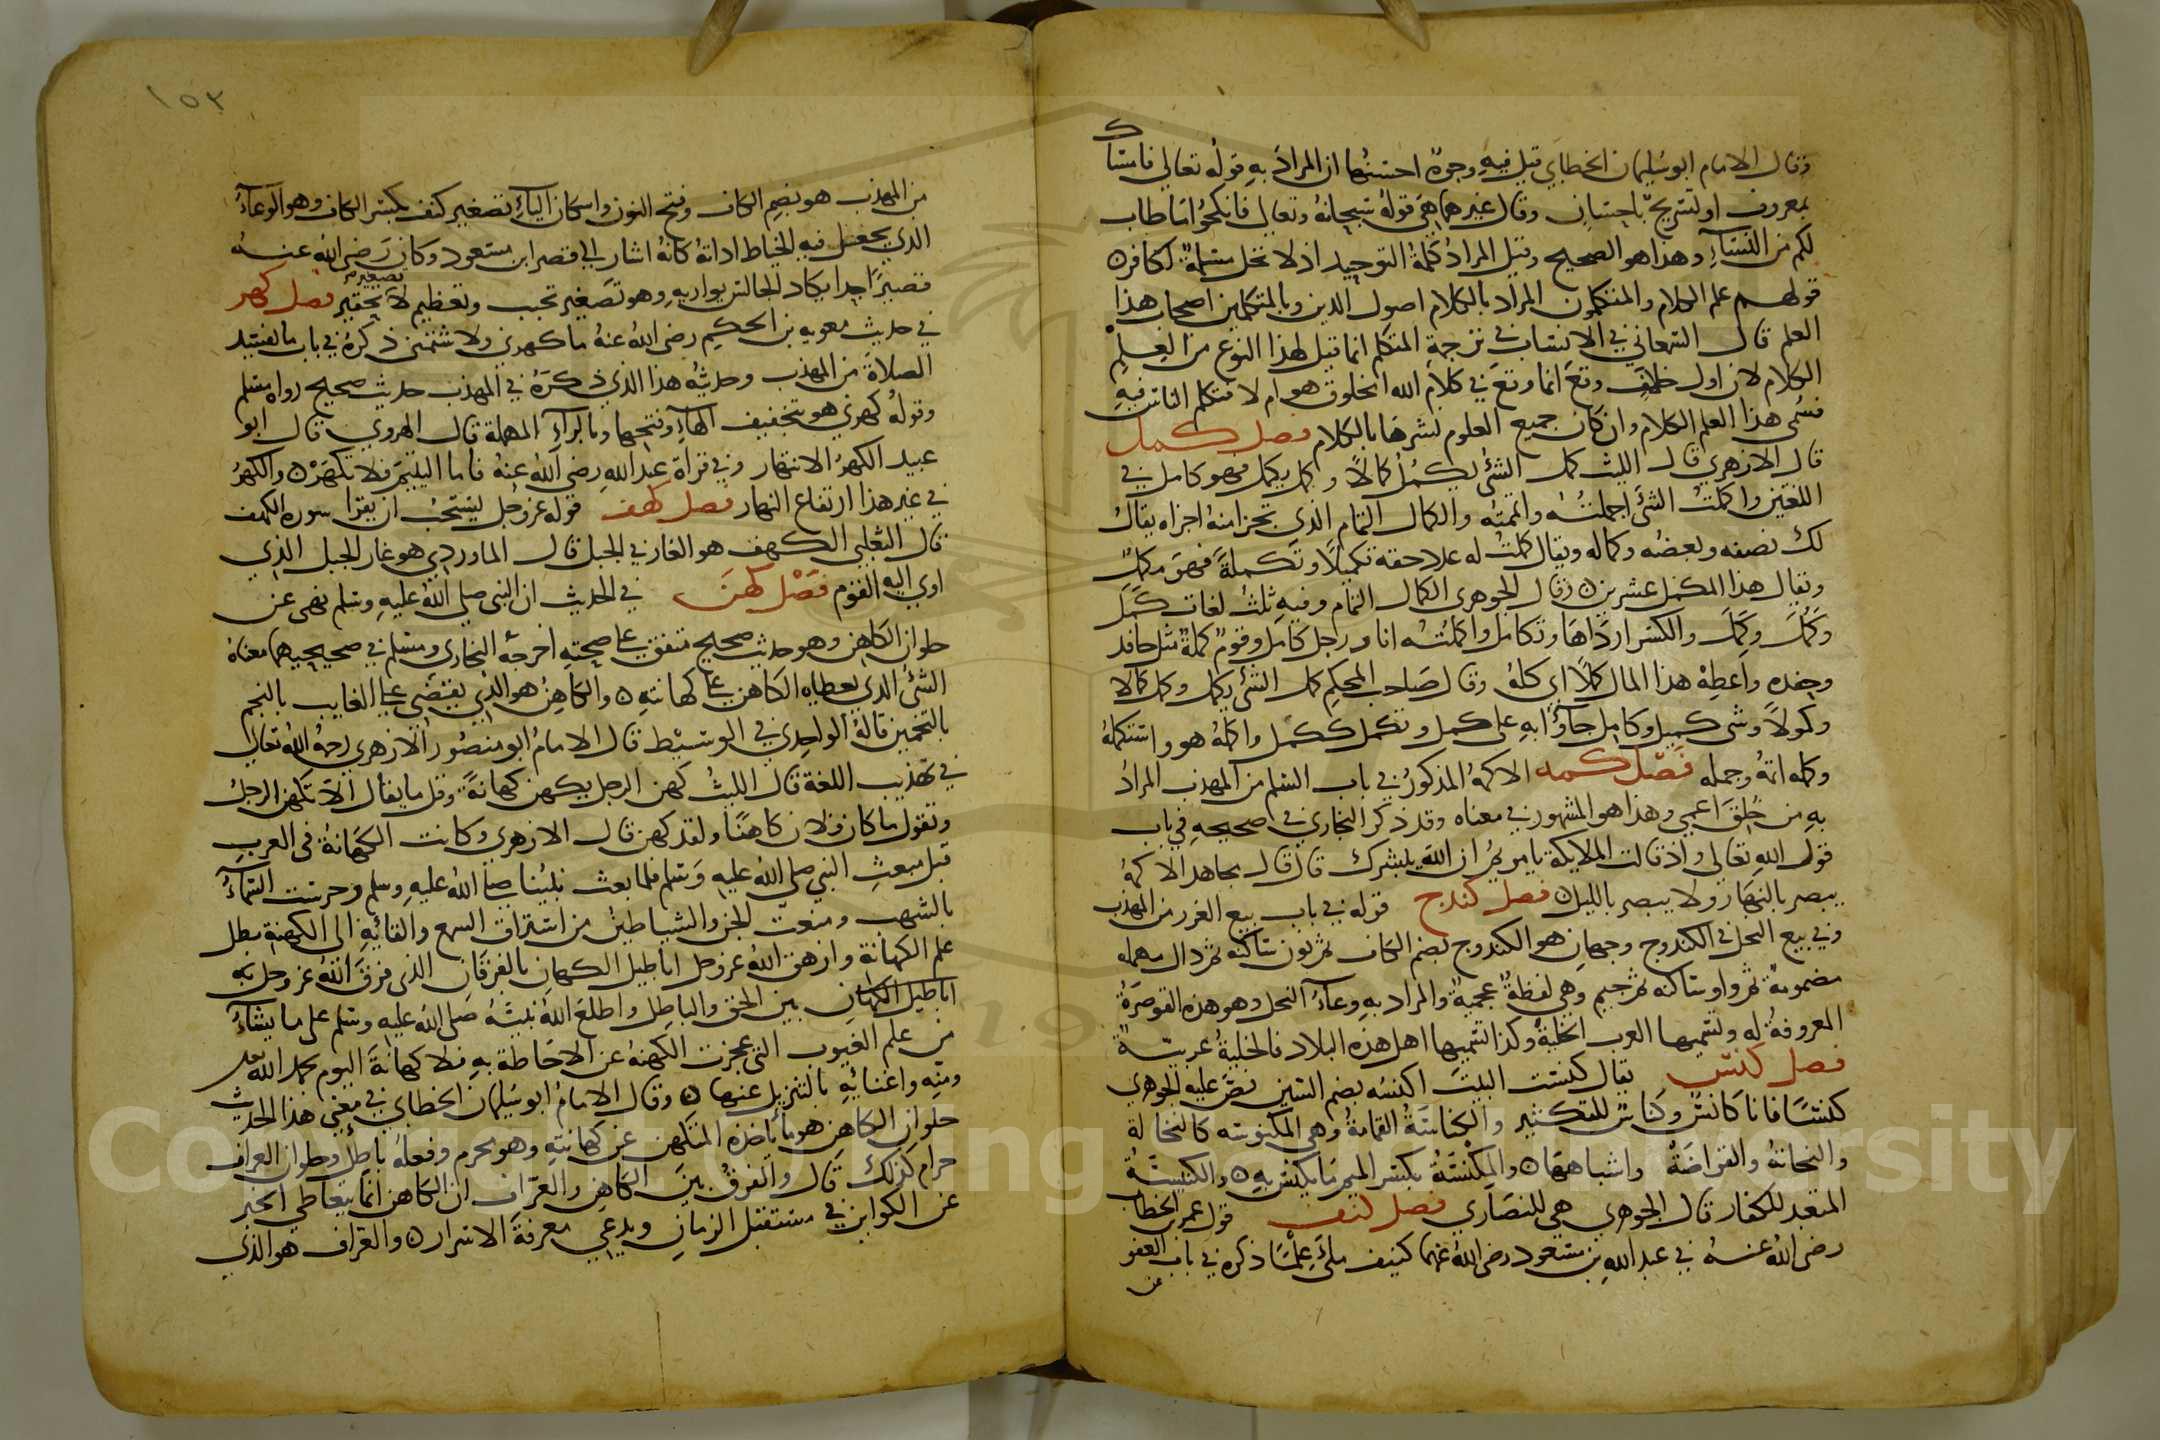 وقال الامام ابو سليمان الخطابي قيل فيه وجوه احسنها ان المراد به قوله تعالى فامساك
بمعروف او تسريح باحسان وقال غيرهما هي قوله سبحانه وتعالى فانكحوا ما طاب
لكم من النساء وهذا هو الصحيح وقيل المراد كلمة التوحيد اذ لا تحل مسلمة لكافر ٥
قولهم علم الكلام والمتكلمون المراد بالكلام اصول الدين وبالمتكلمين اصحاب هذا
العلم قال السمعاني في الانساب في ترجمة المتكلم انما قيل لهذا النوع من العلم
الكلام لان اول خلاف وقع انما وقع في كلام الله امخلوق هو ام لا فتكلم الناس فيه
فسمي هذا العلم الكلام وان كان جميع العلوم نشرها بالكلام فصل كمل
قال الازهري قال الليث كمل الشئ يكمل كمالا وكمل يكمل فهو كامل في
اللغتين واكملت الشئ اجملته واتممته والكمال التمام الذي تجزا منه اجزاه يقال
لك نصفه وبعضه وكماله ويقال كملت له عدد حقه تكميلا وتكملة فهو مكمل
ويقال هذا المكمل عشرين ٥ وقال الجوهري الكمال التمام وفيه ثلث لغات كمل
وكمل وكمل والكسر ارداها وتكامل واكملته انا ورجل كامل وقوم كملة مثل حافد
وحفده واعطه هذا المال كملا اي كله وقال صاحب المحكم كمل الشئ يكمل وكمل كمالا
وكمولا وشى كميل وكامل جاؤا به على كمل وتكمل ككمل واكمله هو واستكمله
وكمله اتمه وجمله فصل كمه الاكمه المذكور في باب السلم من المهذب المراد
به من خلق اعمى وهذا هو المشهور في معناه وقد ذكر البخاري في صحيحه في باب
قول الله تعالى واذ قالت الملايكة يا مريم ان الله يبشرك قال قال مجاهد الاكمه
يبصر بالنهار ولا يبصر بالليل ٥ فصل كندج قوله في باب بيع الغرر من المهذب
وفي بيع النحل في الكندوج وجهان هو الكندوج بضم الكاف ثم نون ساكنة ثم دال مهمله
مضمومة ثم واو ساكنه ثم جيم وهي لفظة عجمية والمراد به وعاء النحل وهو هذه القوصرة
المعروفة له وتسميها العرب الخلية وكذا تسميها اهل هذه البلاد فالخلية عربية
فصل كنس يقال كنست البيت اكنسه بضم السين نص عليه الجوهري
كنسا فانا كانس وكناس للتكثير والكناسة القمامة وهي المكنوسه كالنخالة
والنحاتة والقراضة واشباهها ٥ والمكنسة بكسر الميم ما يكنس به ٥ والكنيسة
المتعبد للكفار قال الجوهري هي للنصاري فصل كنف قول عمر بن الخطاب
رضى الله عنه في عبد الله بن مسعود رضي الله عنهما كنيف ملئ علما ذكره في باب العفو
من
١٥٣
من المهذب هو بضم الكاف وفتح النون واسكان الياء تصغير كنف بكسر الكاف وهو الوعاء
الذي يجعل فيه الخياط اداته كانه اشار الى قصر ابن مسعود وكان رضي الله عنه
قصيرا جدا يكاد الجالس يواريه وهو تصغير تحبب وتعظيم لا تصغير تحقير فصل كهر
في حديث معويه بن الحكيم رضى الله عنه ما كهرني ولا شتمني ذكره في باب ما يفسد
الصلاة من المهذب وحديثه هذا الذي ذكره في المهذب حديث صحيح رواه مسلم
وقوله كهرني هو بتخفيف الهاء وفتحها وبالراء المهملة قال الهروي قال ابو
عبيد الكهر الانتهار وفي قراة عبد الله رضى الله عنه فاما اليتيم فلا تكهر ٥ والكهر
في غير هذا ارتفاع النهار فصل كهف قوله عز وجل يستحب ان يقرا سورة الكهف
قال الثعلبي الكهف هو الغار في الجبل قال الماوردي هو غار الجبل الذي
اوي اليه القوم فصل كهن في الحديث ان النبي صلى الله عليه وسلم نهى عن
حلوان الكاهن وهو حديث صحيح متفق على صحته اخرجه البخارى ومسلم في صحيحيهما معناه
الشئ الذي يعطاه الكاهن على كهانته ٥ والكاهن هو الذي يقضي على الغايب بالنجم
بالتخمين قاله الواحدي في الوسيط قال الامام ابو منصور الازهري رحمه الله تعالى
في تهذيب اللغة قال الليث كهن الرجل يكهن كهانة وقل ما يقال الا تكهن الرجل
وتقول ما كان فلان كاهنا ولقد كهن قال الازهري وكانت الكهانة في العرب
قبل مبعث النبي صلى الله عليه وسلم فلما بعث نبينا صلى الله عليه وسلم وحرست السماء
بالشهب ومنعت الجن والشياطين من استراق السمع والقائه الى الكهنة بطل
علم الكهانة وازهق الله عز وجل اباطيل الكهان بالفرقان الذي فرق الله عز وجل به
اباطيل الكهان بين الحق والباطل واطلع الله نبيه صلى الله عليه وسلم على ما يشاء
من علم الغيوب التي عجزت الكهنة عن الاحاطة به فلا كهانة اليوم بحمد الله
ومنه واغنائه بالتنزيل عنها ٥ وقال الامام ابو سليمان الخطابي في معني هذا الحديث
حلوان الكاهن هو ما ياخذه المتكهن عن كهانته وهو محرم وفعله باطل وحلوان العراف
حرام كذلك قال والفرق بين الكاهن والعراف ان الكاهن انما يتعاطي الخبر
عن الكواين في مستقبل الزمان ويدعي معرفة الاسرار ٥ والعراف هو الذي
Copyright © King Saud University